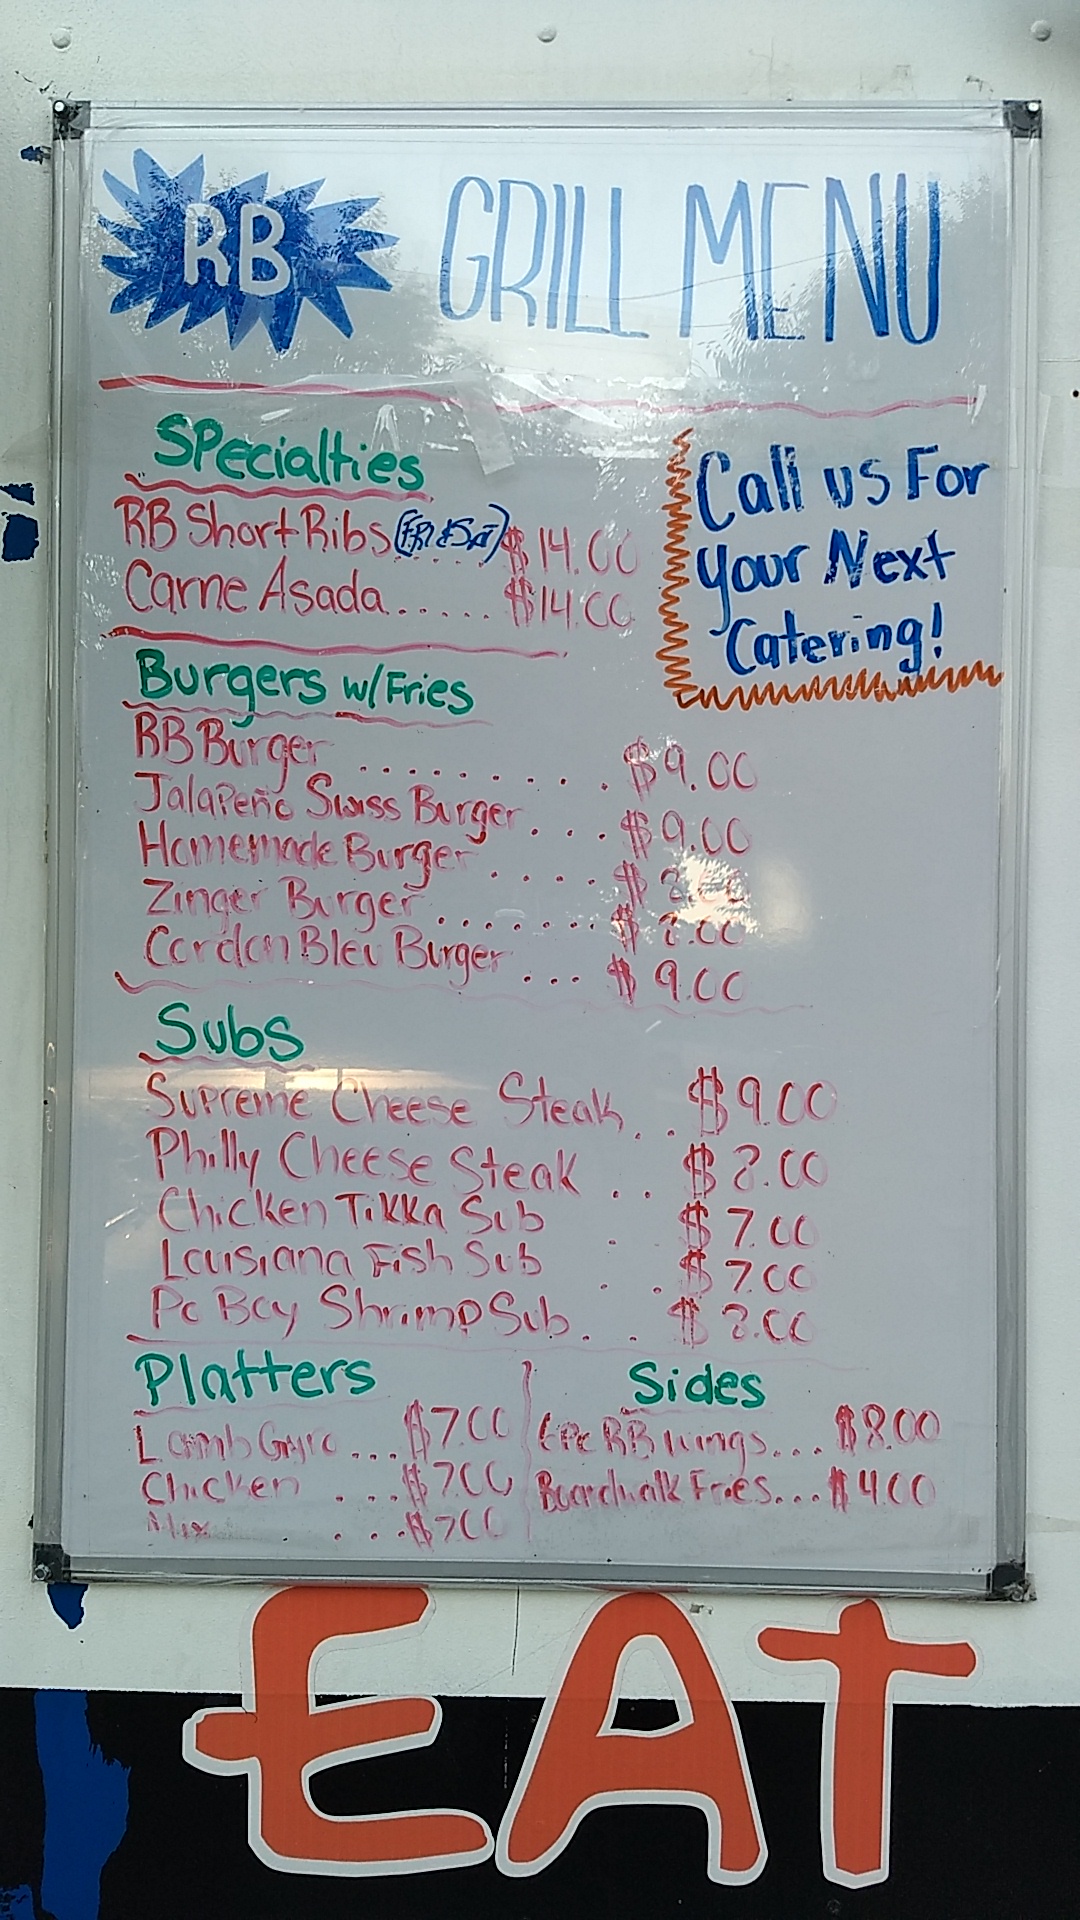 RB GRILL MENU
Specialties
RB Short Ribs (FRI & SAT) $14.00
Carne Asada ..... $14.00
Call us For
Your Next
Catering!
Burgers w/Fries
RB Burger ......... $9.00
Jalapeño Swiss Burger .... $9.00
Homemade Burger ..... $8.00
Zinger Burger ....... $8.00
Cordon Bleu Burger ... $9.00
Subs
Supreme Cheese Steak .. $9.00
Philly Cheese Steak .. $8.00
Chicken Tikka Sub . $7.00
Louisiana Fish Sub .. $7.00
Po Boy Shrimp Sub ... $8.00
Platters
Lamb Gyro ... $7.00
Chicken .... $7.00
Mix .... $7.00
Sides
6pc RB Wings... $8.00
Boardwalk Fries... $4.00
EAT